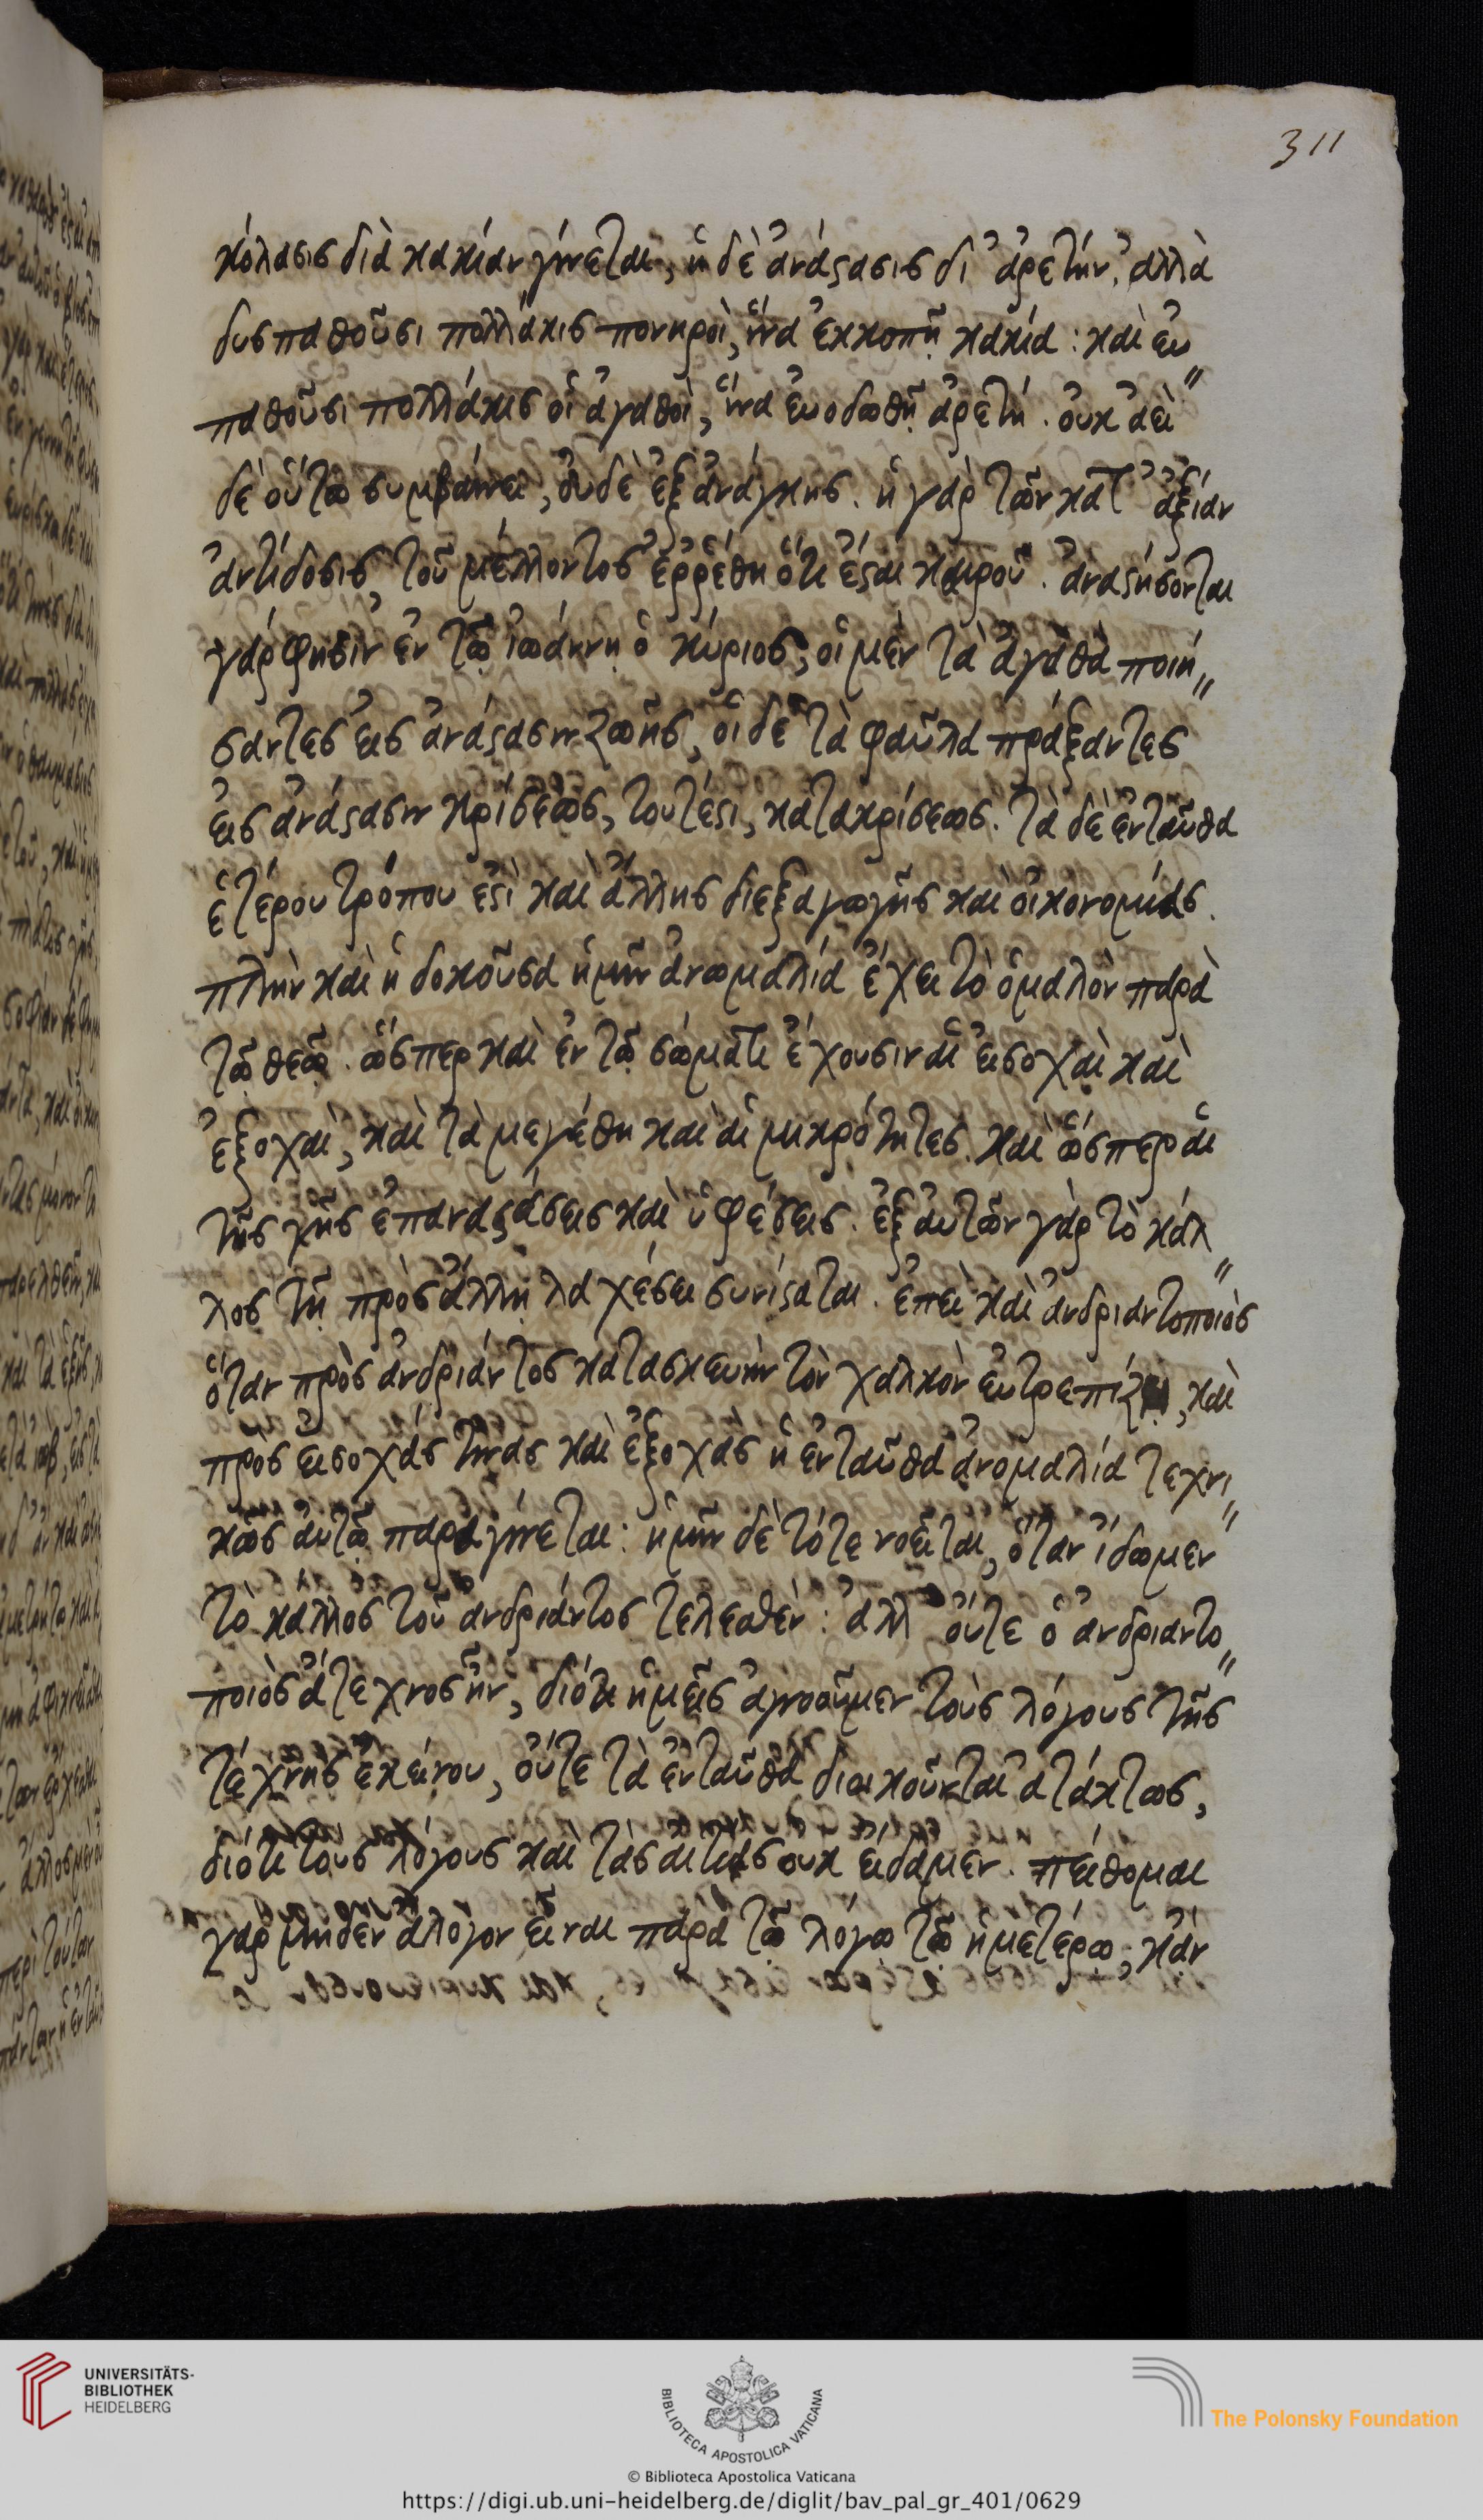 311
κόλασις διὰ κακίαν γίνεται, ἡ δὲ ἀνάστασις δι᾽ ἀρετήν. ἀλλὰ
δυσπαθοῦσι πολλάκις πονηροὶ, ἵνα ἐκκοπῇ κακία: καὶ εὐ
παθοῦσι πολλάκις οἱ ἀγαθοὶ, ἵνα εὐοδωθῇ ἀρετή. οὐκ ἀεὶ
δὲ οὕτω συμβαίνει, οὐδὲ ἐξ ἀνάγκης. ἡ γὰρ τῶν κατ᾽ ἀξίαν
ἀντίδοσις, τοῦ μέλλοντος ἐρρέθη ὅτι ἔσται καιροῦ. ἀναστήσονται
γάρ φησιν ἐν τῷ ἰωάννῃ ὁ κύριος, οἱ μὲν τὰ ἀγαθὰ ποιή
σαντες εἰς ἀνάστασιν ζωῆς, οἱ δὲ τὰ φαῦλα πράξαντες
εἰς ἀνάστασιν κρίσεως, τουτέστι, κατακρίσεως. τὰ δὲ ἐνταῦθα
ἑτέρου τρόπου ἐστὶ καὶ ἄλλης διεξαγωγῆς καὶ οἰκονομίας.
πλὴν καὶ ἡ δοκοῦσα ἡμῖν ἀνωμαλία ἔχει τὸ ὁμαλὸν παρὰ
τῷ θεῷ. ὥσπερ καὶ ἐν τῷ σώματι ἔχουσιν αἱ εἰσοχαὶ καὶ
ἐξοχαὶ, καὶ τὰ μεγέθη καὶ αἱ μικρότητες. καὶ ὥσπερ αἱ
τῆς γῆς ἐπαναστάσεις καὶ ὑφέσεις. ἐξ αὐτῶν γὰρ τὸ κάλ
λος τῇ πρὸς ἄλληλα χέσει συνίσταται. ἐπεὶ καὶ ἀνδριαντοποιὸς
ὅταν πρὸς ἀνδριάντος κατασκευὴν τὸν χαλκὸν εὐτρεπίζῃ, καὶ
πρὸς εἰσοχάς τινας καὶ ἐξοχὰς ἡ ἐνταῦθα ἀνομαλία τεχνι
κῶς αὐτῷ παραγίνεται: ἡμῖν δὲ τότε νοεῖται, ὅταν ἴδωμεν
τὸ κάλλος τοῦ ἀνδριάντος τελεσθέν: ἀλλ᾽ οὔτε ὁ ἀνδριαντο
ποιὸς ἄτεχνος ἦν, διότι ἡμεῖς ἀγνοοῦμεν τοὺς λόγους τῆς
τέχνης ἐκείνου, οὔτε τὰ ἐνταῦθα διοικοῦνται ἀτάκτως,
διότι τοὺς λόγους καὶ τὰς αἰτίας οὐκ εἴδαμεν. πείθομαι
γὰρ μηδὲν ἄλογον εἶναι παρὰ τῷ λόγῳ τῷ ἡμετέρῳ, κἂν
UNIVERSITÄTS-
BIBLIOTHEK
HEIDELBERG
BIBLIOTECA APOSTOLICA VATICANA
The Polonsky Foundation
© Biblioteca Apostolica Vaticana
https://digi.ub.uni-heidelberg.de/diglit/bav_pal_gr_401/0629